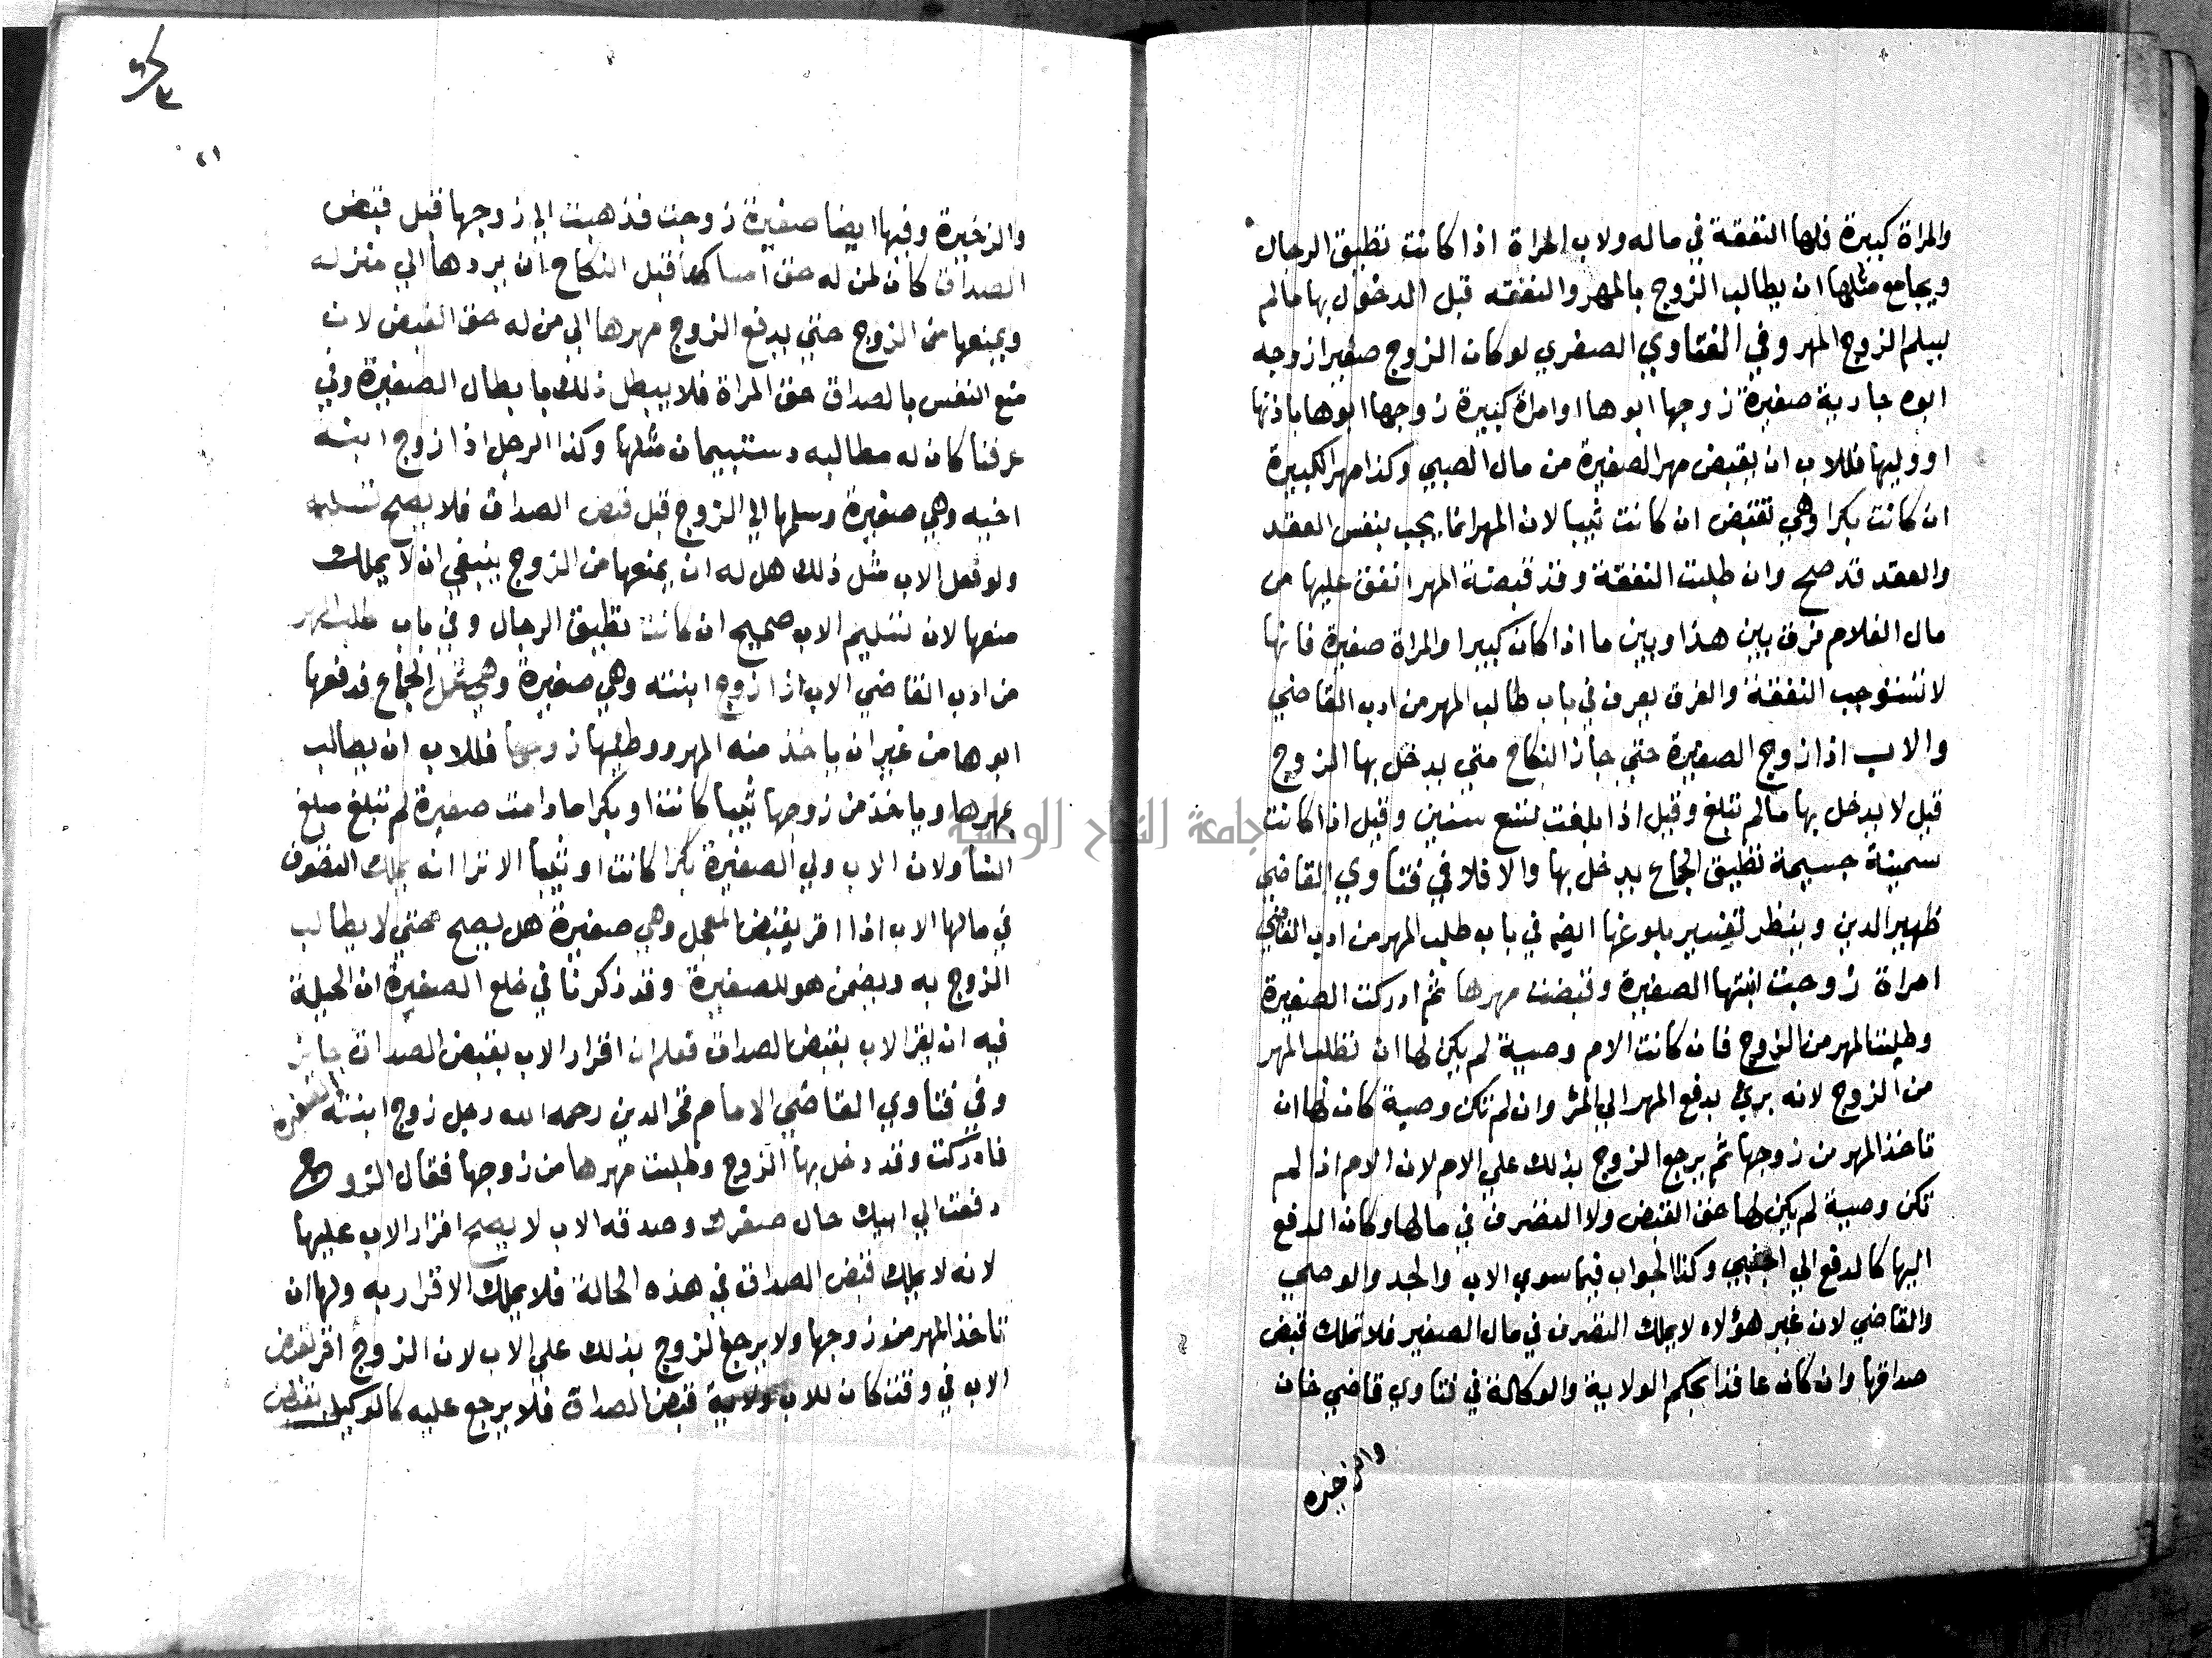 والمراة كبيرة فلها النفقة في ماله ولاب المراة اذا كانت تطيق الرجال
ويجامع مثلها ان يطالب الزوج بالمهر والنفقه قبل الدخول بها مالم
يسلم الزوج المهر وفي الفتاوي الصغري لو كان الزوج صغيرا زوجه
ابوه جارية صغيرة زوجها ابوها او امراة كبيرة زوجها ابوها باذنها
او وليها فللاب ان يقبض مهر الصغيرة من مال الصبي وكذا مهر الكبيرة
ان كانت بكرا وهي تقبض ان كانت ثيبا لان المهر انما يجب بنفس العقد
والعقد قد صح وان طلبت النفقة وقد قبضة المهر انفق عليها من
مال الغلام فرق بين هذا وبين ما اذا كان كبيرا والمراة صغيرة فانها
لا تستوجب النفقة والفرق يعرف في باب طالب المهر من ادب القاضي
والاب اذا زوج الصغيرة حتي جاز النكاح متي يدخل بها الزوج
قيل لا يدخل بها مالم تبلغ وقيل اذا بلغت لتسع سنين وقيل اذا كانت
سمينة جسيمة تطيق الجماع يدخل بها والا فلا في فتاوي القاضي
ظهير الدين وينظر تفسير بلوغها ايضه في باب طلب المهر من ادب القاضي
امراة زوجت ابنتها الصغيرة وقبضت مهرها ثم ادركت الصغيرة
وطلبت المهر من الزوج فان كانت الام وصية لم يكن لها ان تطلب المهر
من الزوج لانه بري بدفع المهر الي وان لم تكن وصية كان لها ان
تاخذ المهر من زوجها ثم يرجع الزوج بذلك علي الام لان الام اذا لم
تكن وصية لم يكن لها حق القبض ولا التصرف في مالها وكان الدفع
اليها كالدفع الي اجنبي وكذا الجواب فيما سوي الاب والجد والوصي
والقاضي لان غير هؤلاء لا يملك التصرف في مال الصغير فلا تملك قبض
صداقها وان كان عاقدا بحكم الولاية والوكالة في فتاوي قاضي خان
والزخيره
٢١
والزخيرة وفيها ايضا صغيرة زوجت فذهبت الي زوجها قبل قبض
الصداق كان لمن له حق امساكها قبل النكاح ان يردها الي منزله
ويمنعها من الزوج حتي يدفع الزوج مهرها الي من له حق القبض لان
منع النفس بالصداق حق المراة فلا يبطل ذلك بابطال الصغيرة وفي
عرفنا كان له مطالبه دستبيمان مثلها وكذا الرجل اذا زوج ابنة
اخيه وهي صغيرة وسلمها الي الزوج قبل قبض الصداق فلا يصح تسليمه
ولو فعل الاب مثل ذلك هل له ان يمنعها من الزوج ينبغي ان لا يملك
منعها لان تسليم الاب صحيح ان كانت تطيق الرجال وفي باب طلب المهر
من ادب القاضي الاب اذا زوج ابنته وهي صغيرة وهي الجماع فدفعها
ابوها من غير ان ياخذ منه المهر ووطيها زوجها فللاب ان يطالب
بمهرها وياخذ من زوجها ثيبا كانت او بكرا مادامت صغيرة لم تبلغ مبلغ
النسا ولان الاب ولي الصغيرة بكرا كانت او ثيبا الا ترا انه يملك التصرف
في مالها الاب اذا اقر بقبض المعجل وهي صغيرة هل يصح حتي لا يطالب
الزوج به ويضمن هو للصغيرة وقد ذكرنا في خلع الصغيرة ان الحيلة
فيه ان يقر الاب بقبض الصداق فعلم ان اقرار الاب بقبض الصداق جايز
وفي فتاوي القاضي الامام فخر الدين رحمه الله رجل زوج ابنته الصغيرة
فادركت وقد دخل بها الزوج وطلبت مهرها من زوجها فقال الزوج
دفعت الي ابيك حال صغرك وصدقه الاب لا يصح اقرار الاب عليها
لانه لا يملك قبض الصداق في هذه الحالة فلا يملك الاقرار به ولها ان
تاخذ المهر من زوجها ولا يرجع الزوج بذلك علي الاب لان الزوج اقر بقبض
الاب في وقت كان للاب ولاية قبض الصداق فلا يرجع عليه كالوكيل بقبض
جامعة النجاح الوطنية